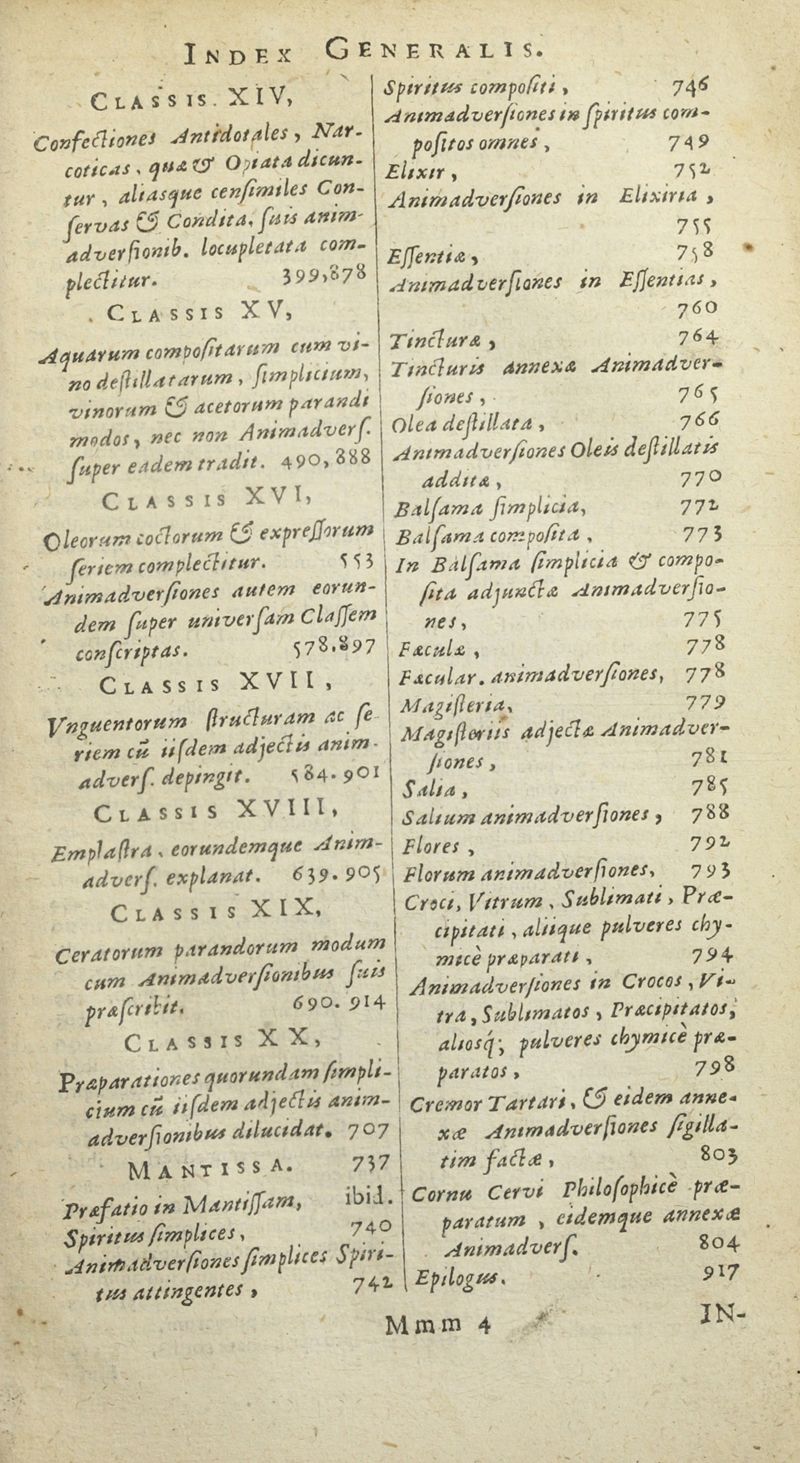 INDEX GENERALIS.
CLASSIS. XIV,
Confectiones Antidotales, Nar-
coticas, quæ & Opiata dicun-
tur, aliasque censimiles Con-
servas & Condita, suis anim-
adversionib. locupletata com-
plectitur. 399,878
CLASSIS XV,
Aquarum compositarum cum vi-
no destillatarum, simplicium,
vinorum & acetorum parandi
modos, nec non Animadvers.
super eadem tradit. 490, 888
CLASSIS XVI,
Oleorum coctorum & expressorum
seriem complectitur. 553
Animadversiones autem eorun-
dem super universam Classem
conscriptas. 578.897
CLASSIS XVII,
Vnguentorum structuram ac se-
riem cū iisdem adjectis anim-
advers. depingit. 584. 901
CLASSIS XVIII,
Emplastra, eorundemque Anim-
advers. explanat. 639. 905
CLASSIS XIX,
Ceratorum parandorum modum
cum Animadversionibus suis
præscribit. 690. 914
CLASSIS XX,
Præparationes quorundam simpli-
cium cū iisdem adjectis anim-
adversionibus dilucidat. 707
MANTISSA. 737
Præfatio in Mantissam, ibid.
Spiritus simplices, 740
Animadversiones simplices Spiri-
tus attingentes, 742
Spiritus compositi, 746
Animadversiones in spiritus com-
positos omnes, 749
Elixir, 752
Animadversiones in Elixiria,
755
Essentiæ, 758
Animadversiones in Essentias,
760
Tincturæ, 764
Tincturis annexæ Animadver-
siones, 765
Olea destillata, 766
Animadversiones Oleis destillatis
additæ, 770
Balsama simplicia, 772
Balsama composita, 773
In Balsama simplicia & compo-
sita adjunctæ Animadversio-
nes, 775
Fæculæ, 778
Fæcular. animadversiones, 778
Magisteria, 779
Magisteriis adjectæ Animadver-
siones, 781
Salia, 785
Salium animadversiones, 788
Flores, 792
Florum animadversiones, 793
Croci, Vitrum, Sublimati, Præ-
cipitati, aliique pulveres chy-
micè præparati, 794
Animadversiones in Crocos, Vi-
tra, Sublimatos, Præcipitatos,
aliosq; pulveres chymicè præ-
paratos, 798
Cremor Tartari, & eidem anne-
xæ Animadversiones sigilla-
tim factæ, 803
Cornu Cervi Philosophicè præ-
paratum, eidemque annexæ
Animadvers. 804
Epilogus. 917
Mmm 4 IN-